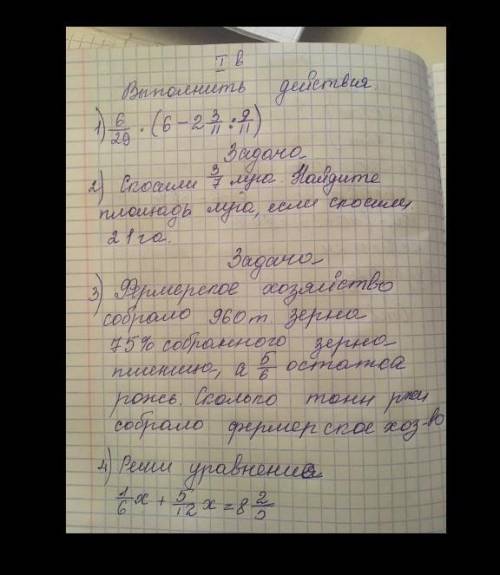 I в
Выполнить действия
1) 6/29 · (6 - 2 3/11 : 9/11)
Задача
2) Скосили 3/7 луга Найдите
площадь луга, если скосили
21 га.
Задача
3) Фермерское хозяйство
собрало 960 т зерна
75% собранного зерна
пшеницы, а 5/6 остатка
рожь. Сколько тонн ржи
собрало фермерское хоз-во
4) Реши уравнение
1/6 x + 5/12 x = 8 2/